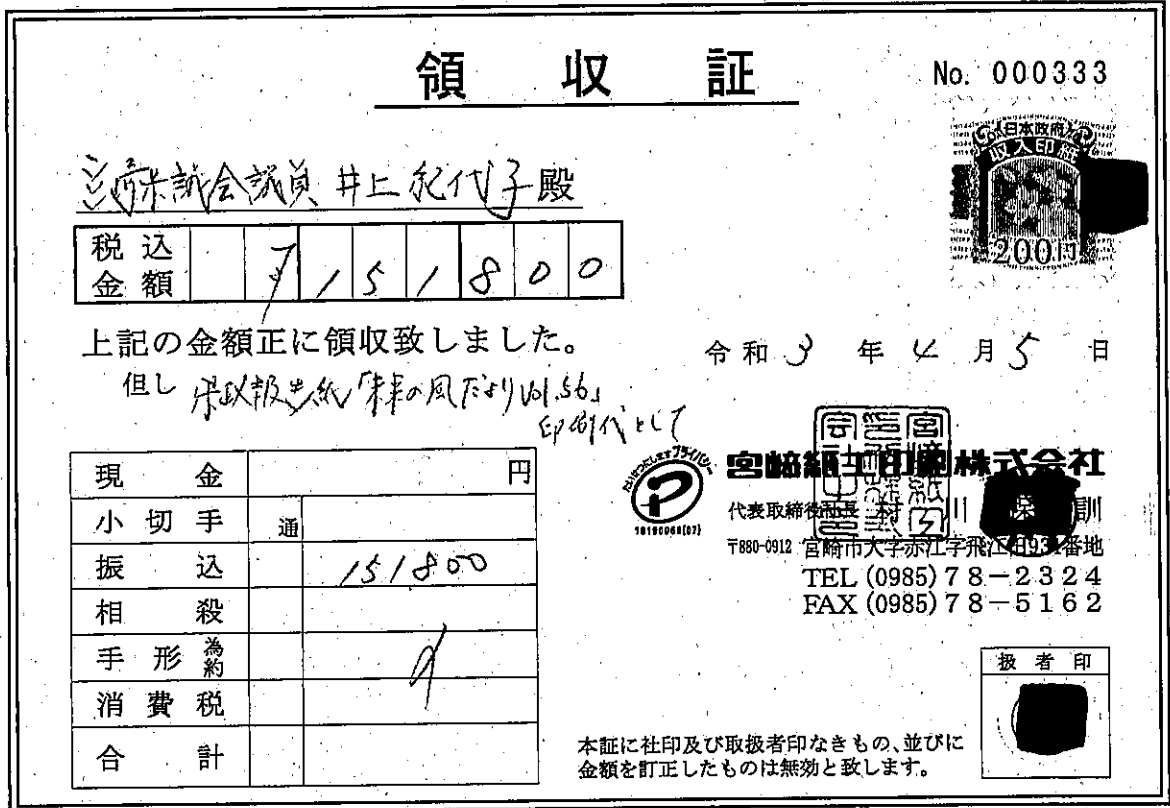 領収証
No. 000333
日本政府
収入印紙
200円
宮崎県議会議員 井上紀代子殿
税込金額 ¥151800
上記の金額正に領収致しました。
令和3年4月5日
但し 県政報告紙「未来の風だよりVol.56」
印刷代として
現金 円
小切手 通
振込 151800
相殺
手形 為約
消費税
合計
たいせつにしますプライバシー
宮崎紙工印刷株式会社
代表取締役社長 村川 訓
〒880-0912 宮崎市大字赤江字飛江田931番地
TEL (0985) 78-2324
FAX (0985) 78-5162
扱者印
本証に社印及び取扱者印なきもの、並びに
金額を訂正したものは無効と致します。